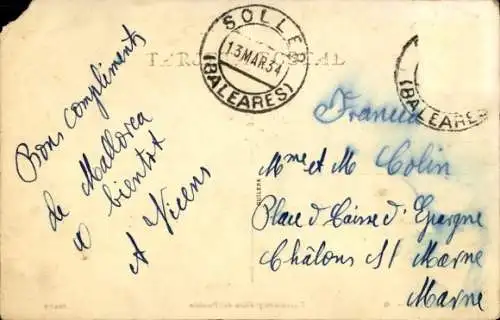 SOLLER
13 MAR 34
(BALEARES)
(BALEARES)
TARJETA POSTAL
Bons compliments
de Mallorca
a bientot
A Vicens
Francia
Mme et M Colin
Place d Caisse d' Epargne
Châlons s/ Marne
Marne